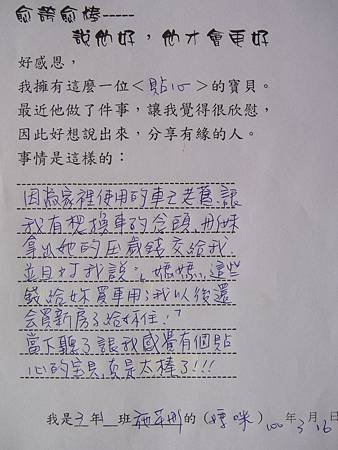 愈誇愈棒-----
說他好，他才會更好
好感恩，
我擁有這麼一位＜貼心＞的寶貝。
最近他做了件事，讓我覺得很欣慰，
因此好想說出來，分享有緣的人。
事情是這樣的：
因為家裡使用的車已老舊，讓
我有想換車的念頭，姍姍
拿出她的压歲錢交給我
並且对我說：媽媽，這些
錢給妳買車用；我以後還
會買新房子給妳住！
當下聽了讓我感覺有個貼
心的宝貝，真是太棒了!!!
我是三年 班 的（媽咪）100年3月16日